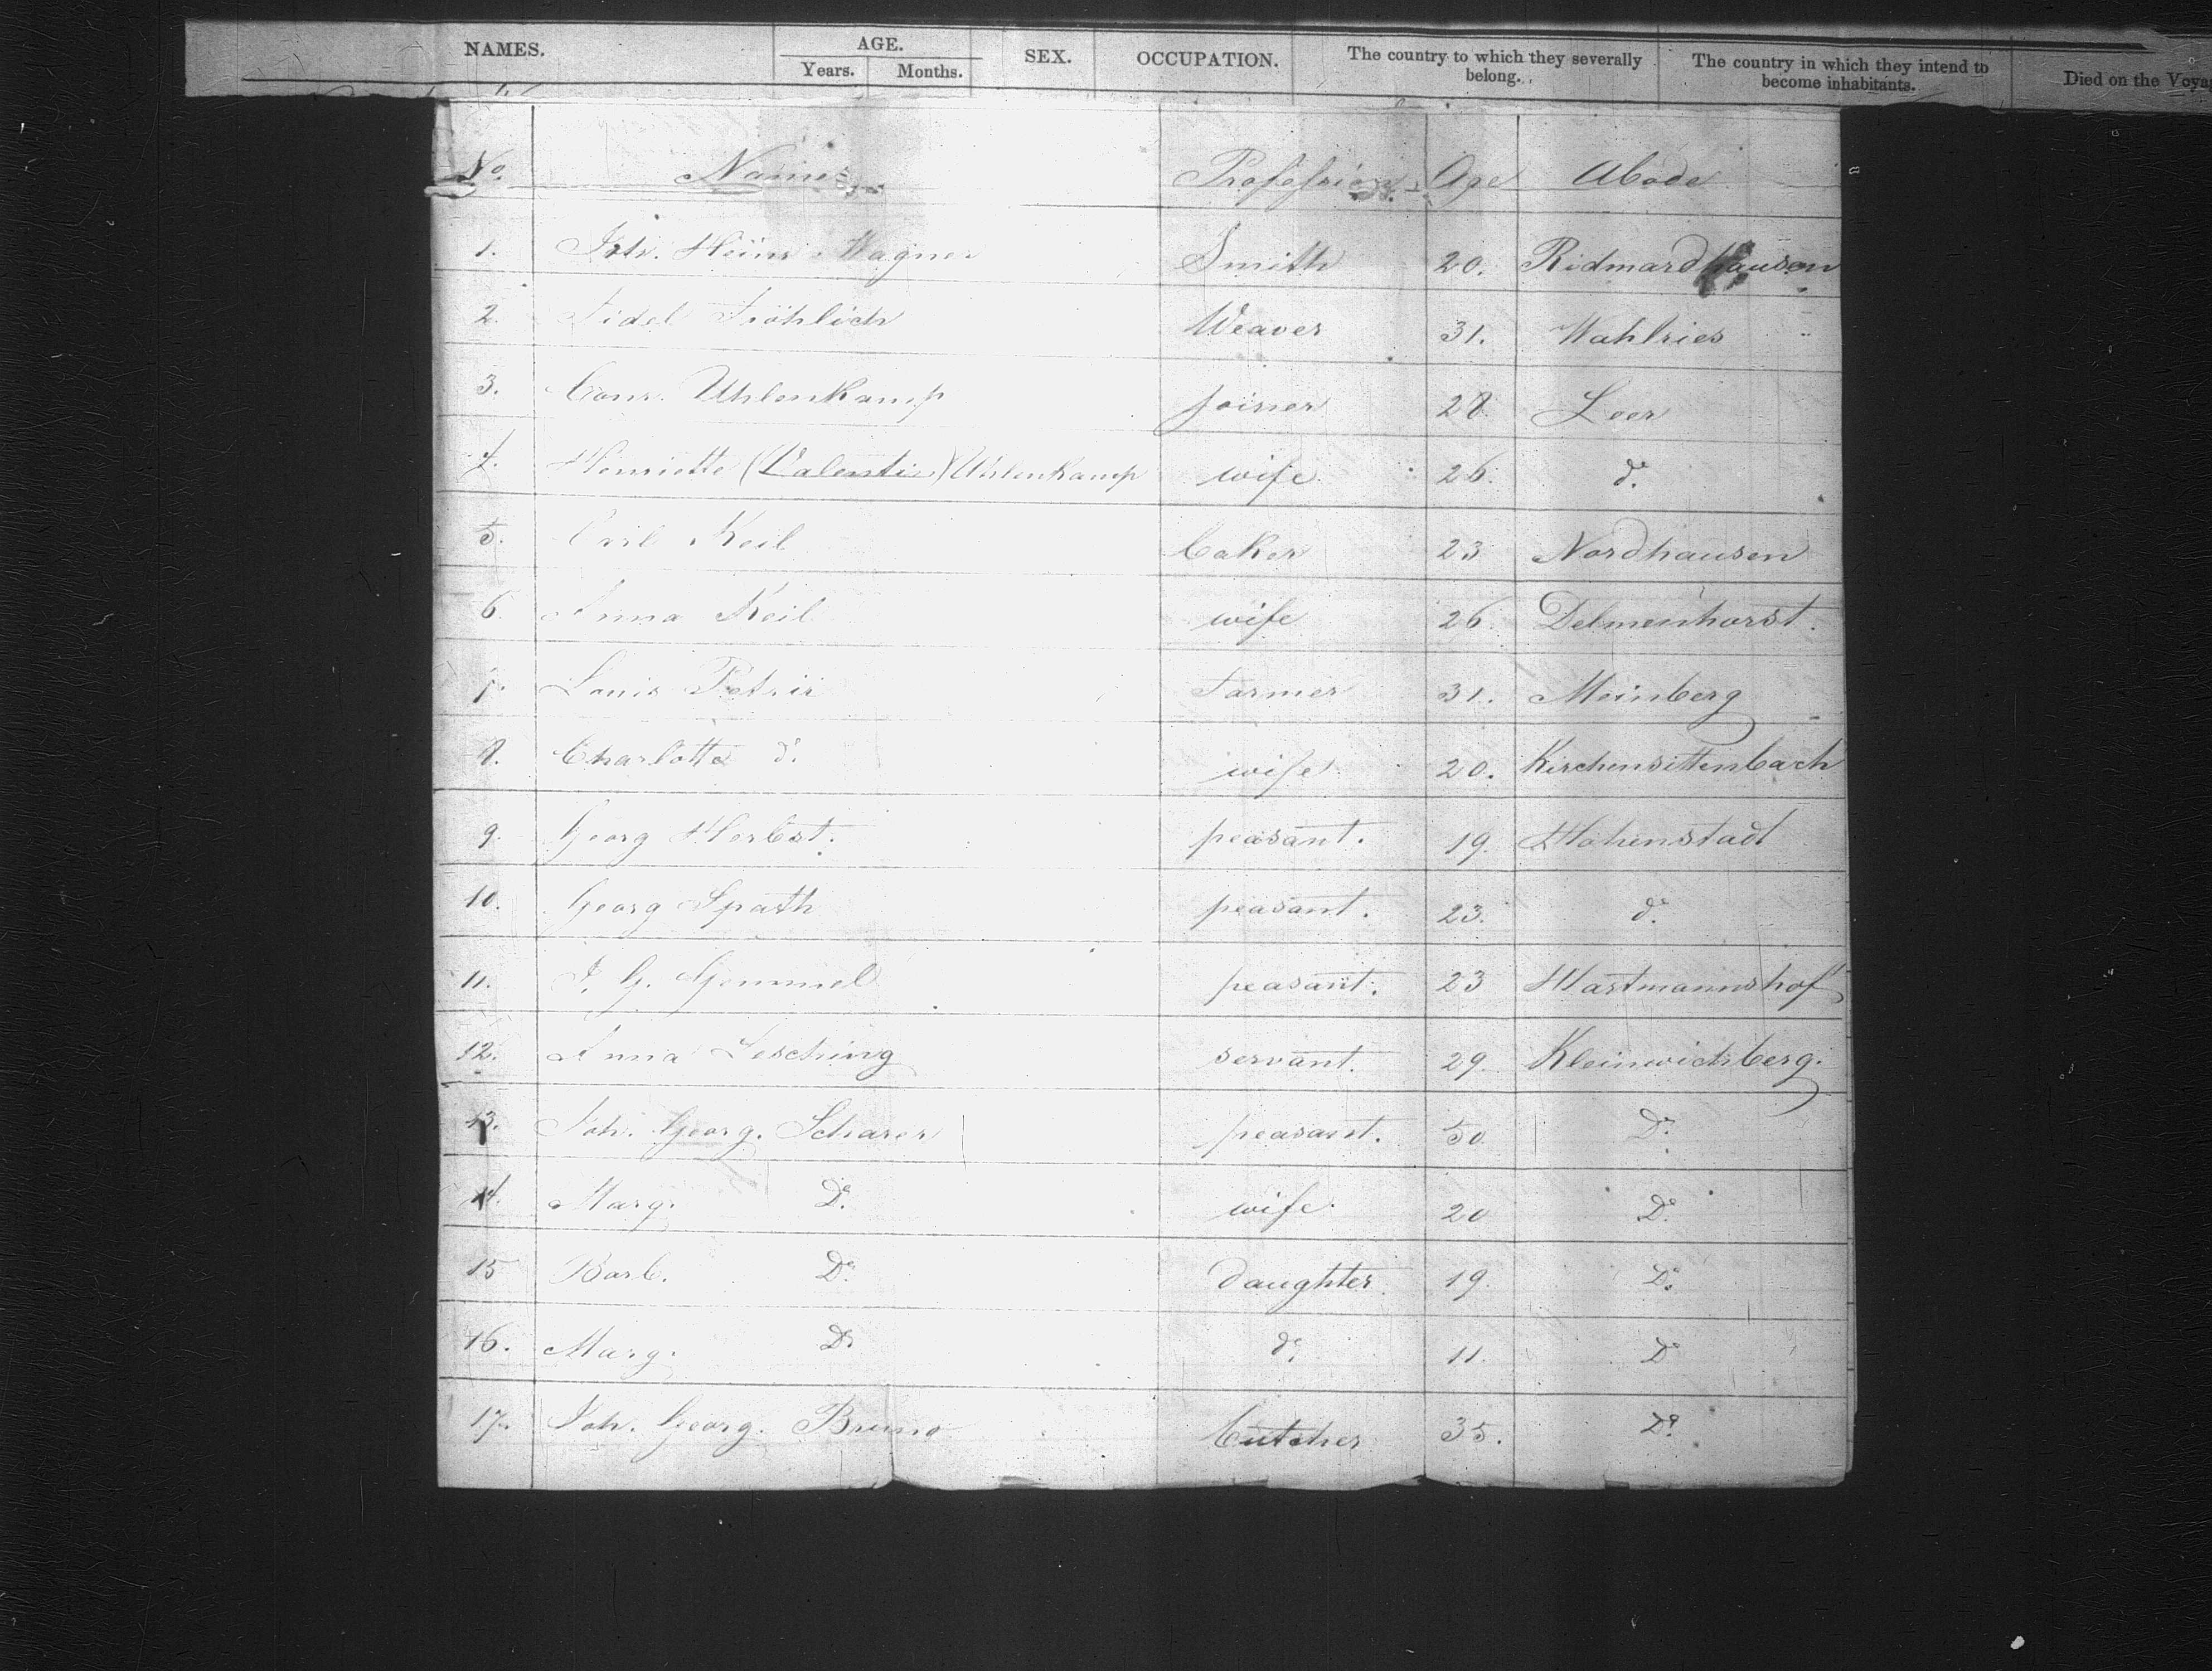 NAMES. AGE. SEX. OCCUPATION. The country to which they severally belong. The country in which they intend to become inhabitants. Died on the Voya
Years. Months.
No. Names Profession Age Abode
1. Joh. Heinr. Wagner Smith 20. Ridmardhausen
2. Fidel Fröhlich Weaver 31. Wahlries
3. Conr. Uhlenkamp joiner 28. Leer
4. Henriette (Valentin) Uhlenkamp wife 26. do.
5. Carl Keil baker 23 Nordhausen
6. Anna Keil wife 26. Delmenhorst.
7. Louis Petrii Farmer 31. Meinberg
8. Charlotte do. wife 20. Kirchensittenbach
9. Georg Herbst. peasant. 19. Hohenstadt
10. Georg Späth peasant. 23. do.
11. J. G. Gemmel peasant. 23 Hartmannshof
12. Anna Lesching servant. 29. Kleinwichberg.
13. Joh. Georg. Scharer peasant. 50 Do.
14. Marg. Do. wife. 20 Do.
15 Barb. Do. daughter. 19. Do.
16. Marg. Do. do. 11. Do
17. Joh. Georg. Bruno butcher 35. Do.